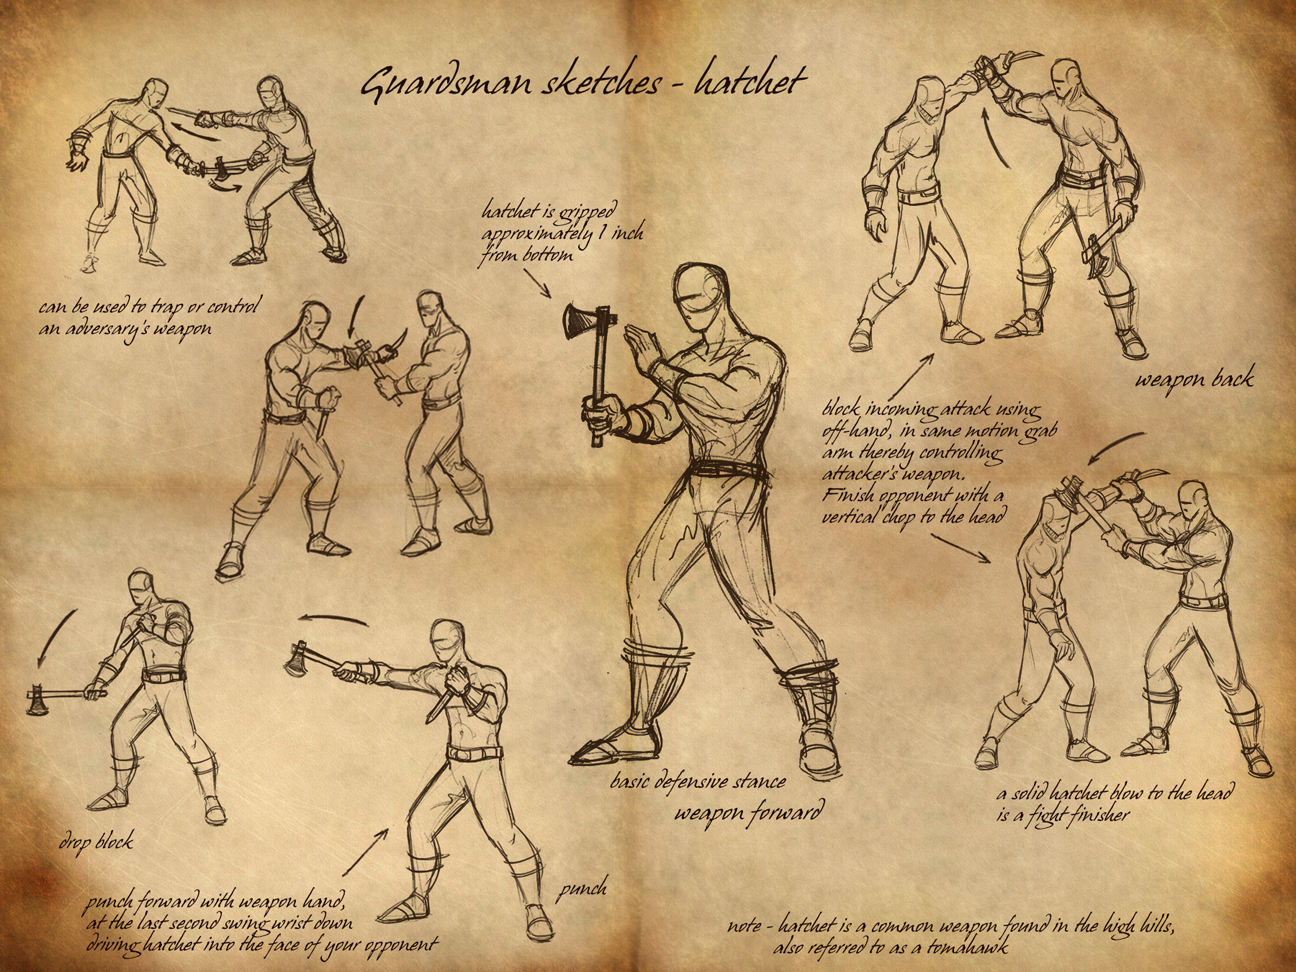 Guardsman sketches - hatchet
can be used to trap or control
an adversary's weapon
hatchet is gripped
approximately 1 inch
from bottom
weapon back
block incoming attack using
off-hand, in same motion grab
arm thereby controlling
attacker's weapon.
Finish opponent with a
vertical chop to the head
a solid hatchet blow to the head
is a fight finisher
basic defensive stance
weapon forward
drop block
punch
punch forward with weapon hand,
at the last second swing wrist down
driving hatchet into the face of your opponent
note - hatchet is a common weapon found in the high hills,
also referred to as a tomahawk